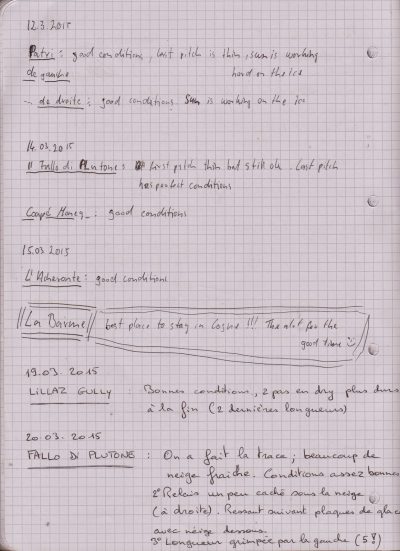 12.3.2015
Patri : good conditions, last pitch is thin, sun is working
de gauche hard on the ice
de droite : good conditions. Sun is working on the ice
14.03.2015
Fallo di Plutone : first pitch thin but still ok. Last pitch
has perfect conditions
Coupé Money : good conditions
15.03.2015
L'Acherante : good conditions
La Barme best place to stay in Cogne !!! Thanks a lot for the
good time
19.03.2015
LILLAZ GULLY : Bonnes conditions, 2 pas en dry plus durs
à la fin (2 dernières longueurs)
20.03.2015
FALLO DI PLUTONE : On a fait la trace ; beaucoup de
neige fraîche. Conditions assez bonnes
2° Relais un peu caché sous la neige
(à droite). Ressaut suivant plaques de glace
avec neige dessous.
3° Longueur grimpée par la gauche (5